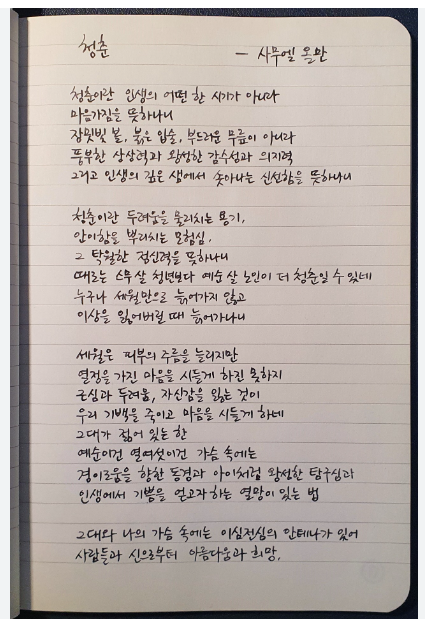 청춘
- 사무엘 울만
청춘이란 인생의 어떤 한 시기가 아니라
마음가짐을 뜻하나니
장밋빛 볼, 붉은 입술, 부드러운 무릎이 아니라
풍부한 상상력과 왕성한 감수성과 의지력
그리고 인생의 깊은 샘에서 솟아나는 신선함을 뜻하나니
청춘이란 두려움을 물리치는 용기,
안이함을 뿌리치는 모험심,
그 탁월한 정신력을 뜻하나니
때로는 스무살 청년보다 예순 살 노인이 더 청춘일 수 있네
누구나 세월만으로 늙어가지 않고
이상을 잃어버릴 때 늙어가나니
세월은 피부의 주름을 늘리지만
열정을 가진 마음을 시들게 하진 못하지
근심과 두려움, 자신감을 잃는 것이
우리 기백을 죽이고 마음을 시들게 하네
그대가 젊어 있는 한
예순이건 열여섯이건 가슴 속에는
경이로움을 향한 동경과 아이처럼 왕성한 탐구심과
인생에서 기쁨을 얻고자 하는 열망이 있는 법
그대와 나의 가슴 속에는 이심전심의 안테나가 있어
사람들과 신으로부터 아름다움과 희망,